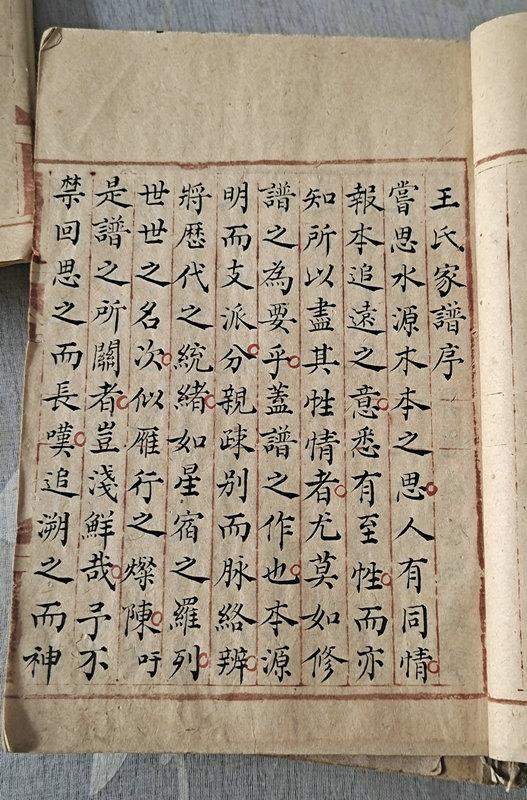 王氏家譜序
嘗思水源木本之思人有同情
報本追遠之意悉有至性而亦
知所以盡其性情者尤莫如修
譜之為要乎蓋譜之作也本源
明而支派分親疎別而脉絡辨
將歴代之統緒如星宿之羅列
世世之名次似雁行之燦陳吁
是譜之所關者豈淺鮮哉予不
禁回思之而長嘆追溯之而神